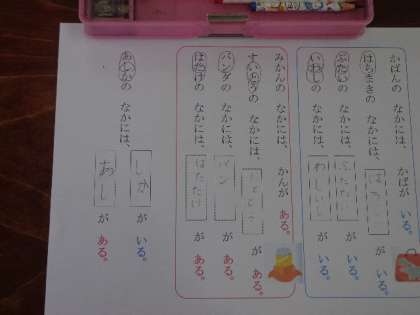 かばんの なかには、 かばが いる。
はちまきの なかには、 が いる。
ぶたいの なかには、 が いる。
いわしの なかには、 が いる。
みかんの なかには、 かんが ある。
なかには、 が ある。
パンダの なかには、 パン が ある。
はたけの なかには、 が ある。
あしかの なかには、 しか が いる。
あし が ある。